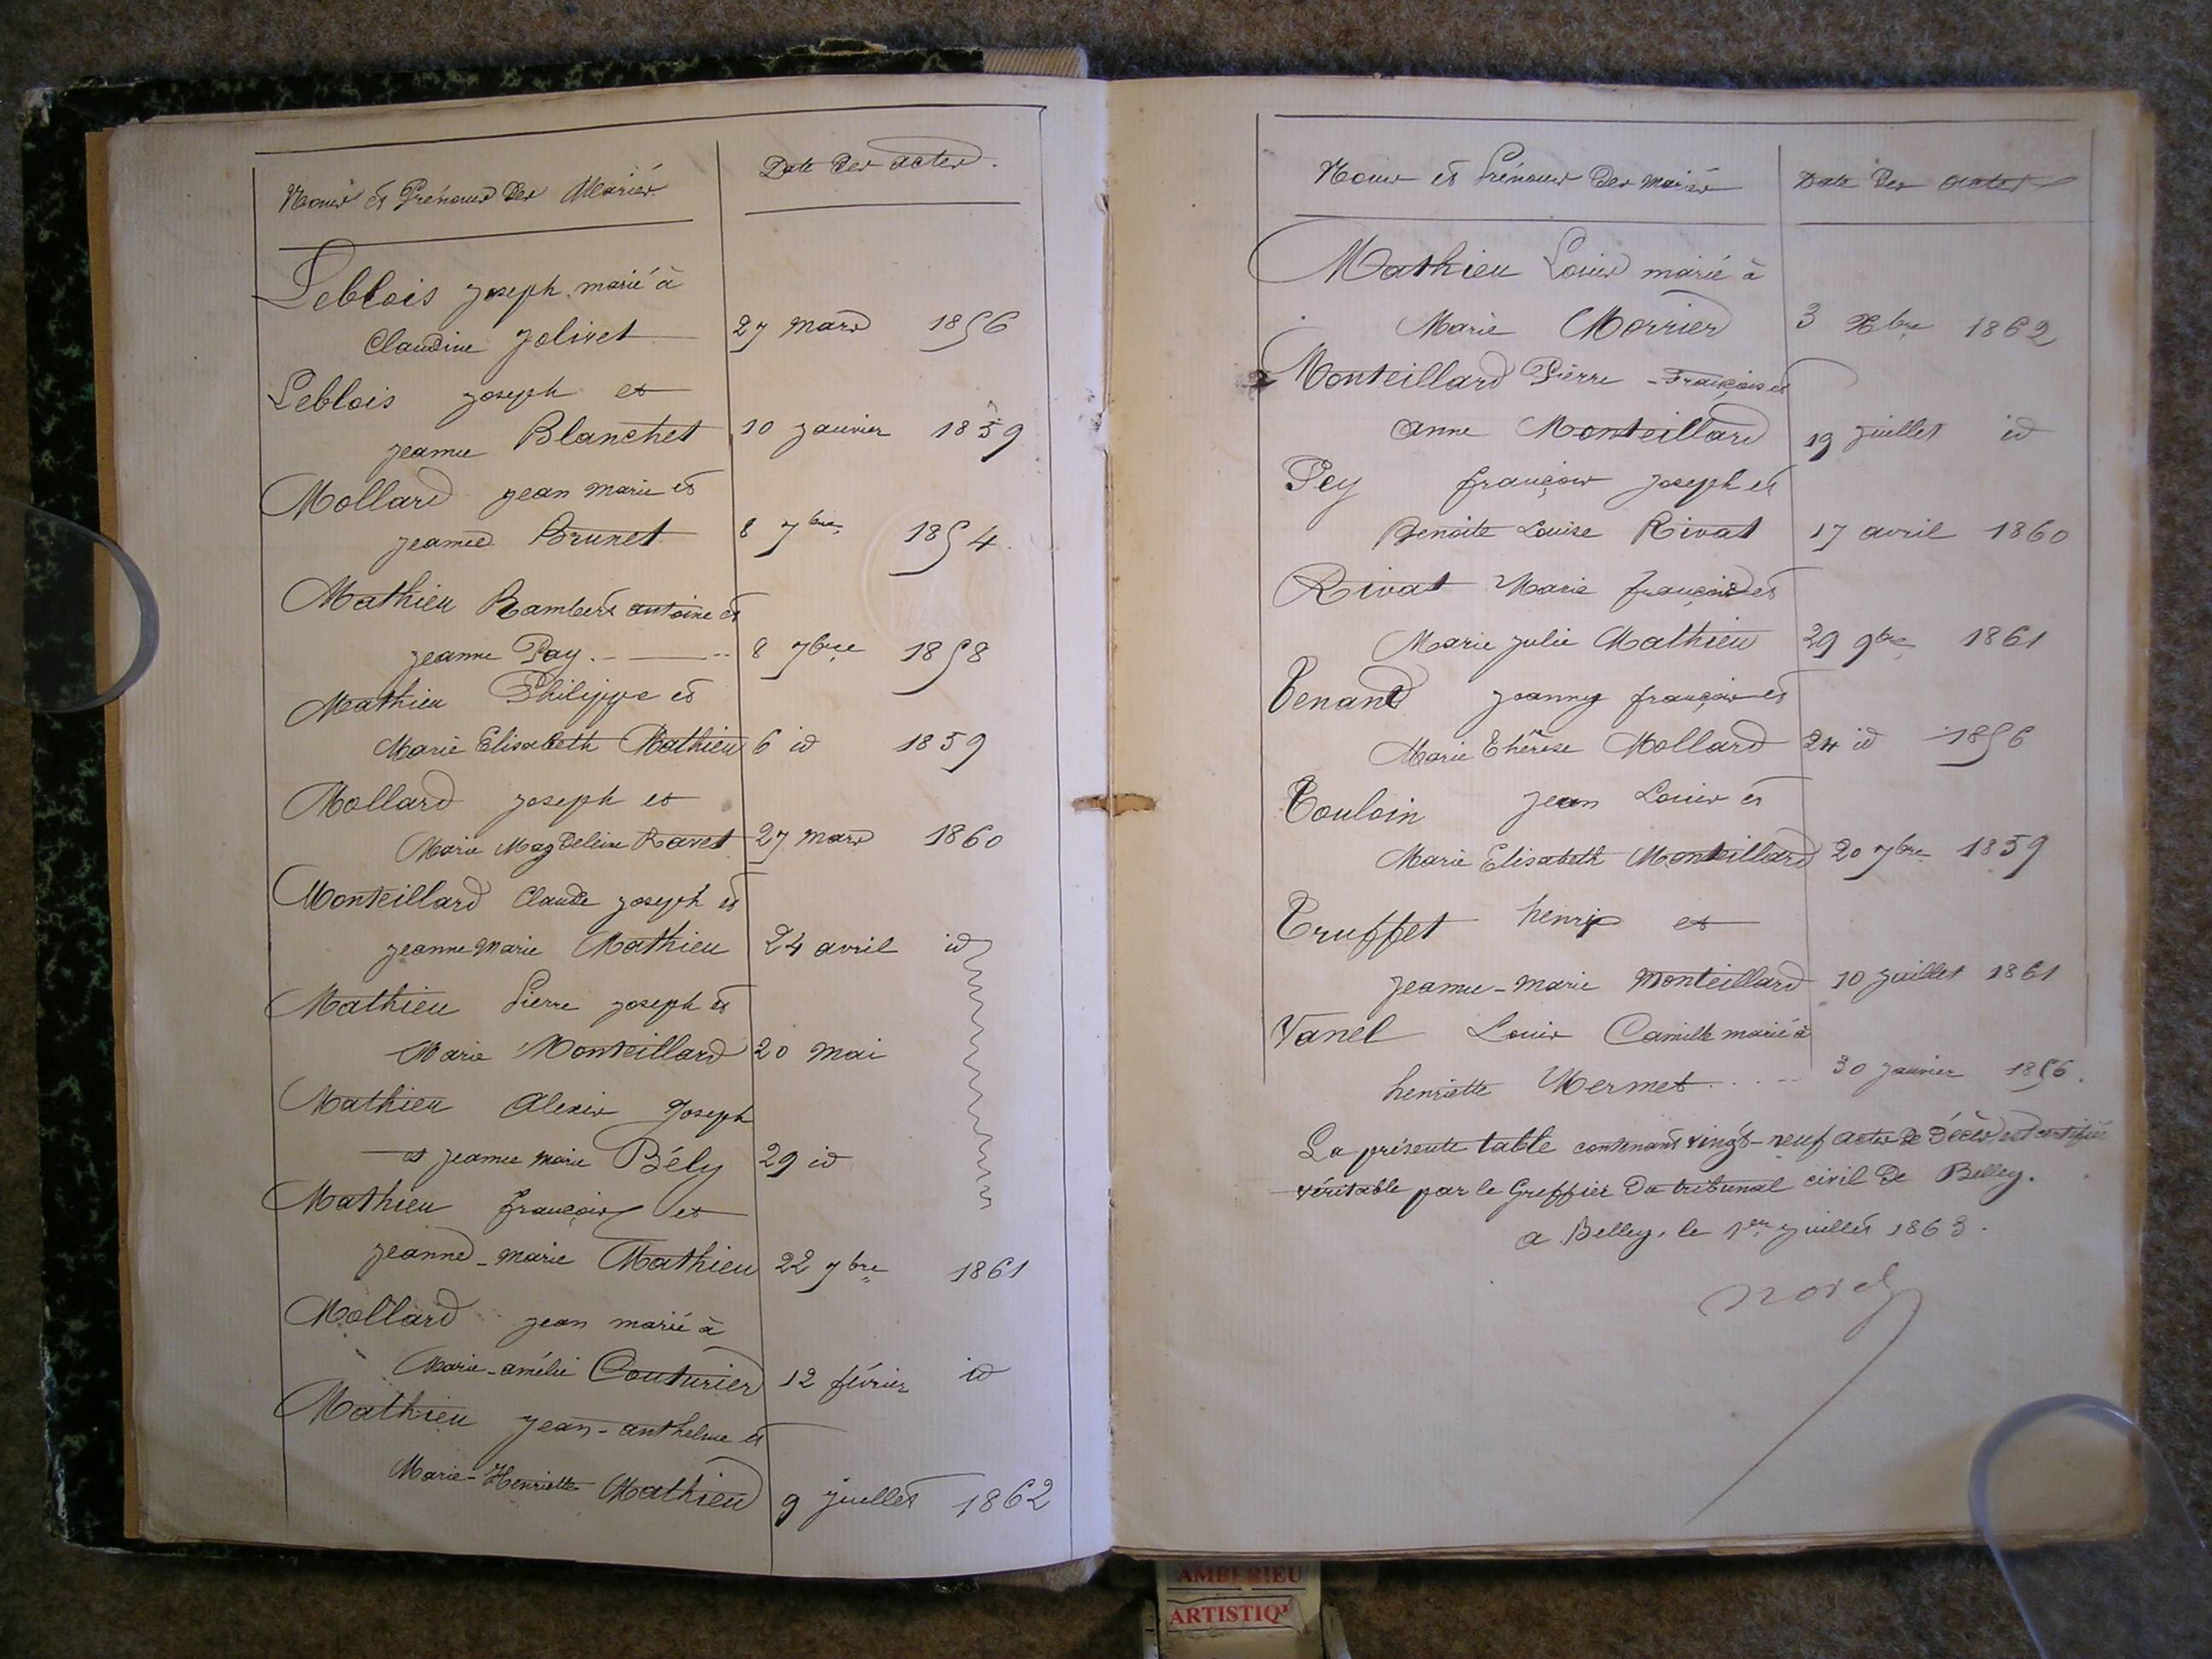 Noms et Prénoms des Mariés
Date des actes.
Leblois joseph marié à
Claudine Jolivet 27 mars 1856
Leblois joseph et
jeanne Blanchet 10 janvier 1859
Mollard jean marie et
jeanne Brunet 8 7bre 1854
Mathieu Rambert antoine et
jeanne Pay 8 7bre 1858
Mathieu Philippe et
Marie Elisabeth Mathieu 6 id 1859
Mollard joseph et
Marie Magdeleine Ravet 27 mars 1860
Monteillard Claude joseph et
jeanne Marie Mathieu 24 avril id
Mathieu Pierre joseph et
Marie Monteillard 20 mai
Mathieu Alexis Joseph
et jeanne marie Bély 29 id
Mathieu françois et
jeanne-marie Mathieu 22 7bre 1861
Mollard jean marié à
Marie-amélie Couturier 12 février id
Mathieu jean-anthelme et
Marie-Henriette Mathieu 9 juillet 1862
Noms et Prénoms des mariés
Date des actes
Mathieu Louis marié à
Marie Morrier 3 Xbre 1862
Monteillard Pierre-François et
anne Monteillard 19 juillet id
Pey françois joseph et
Benoite Louise Rivat 17 avril 1860
Rivat Marie françois et
Marie julie Mathieu 29 9bre 1861
Tenand joanny françois et
Marie Thérèse Mollard 24 id 1856
Touloin jean Louis et
Marie Elisabeth Monteillard 20 7bre 1859
Truffet henri et
jeanne-marie Monteillard 10 juillet 1861
Vanel Louis Camille marié à
henriette Mermet 30 janvier 1856.
La présente table contenant vingt-neuf actes de décès est certifiée
véritable par le Greffier du tribunal civil de Belley.
a Belley, le 1er juillet 1863.
AMBERIEU
ARTISTIQ